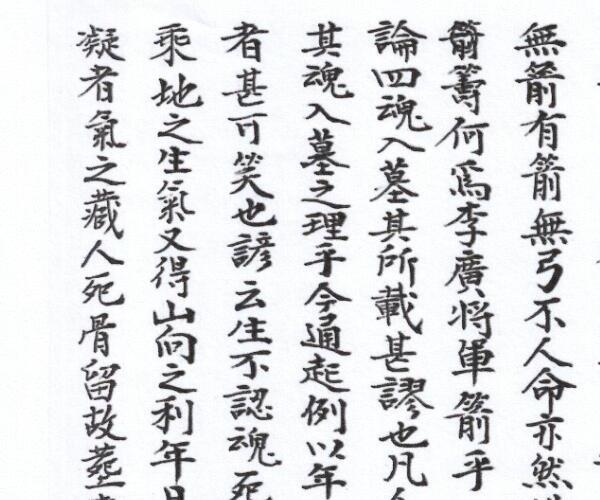 無箭有箭無弓不人命亦然
箭籌何爲李廣將軍箭乎
論四魂入墓其所載甚謬也凡
其魂入墓之理乎今通起例以年
者甚可笑也諺云生不認魂死
乘地之生氣又得山向之利年
凝者氣之藏人死骨留故葬